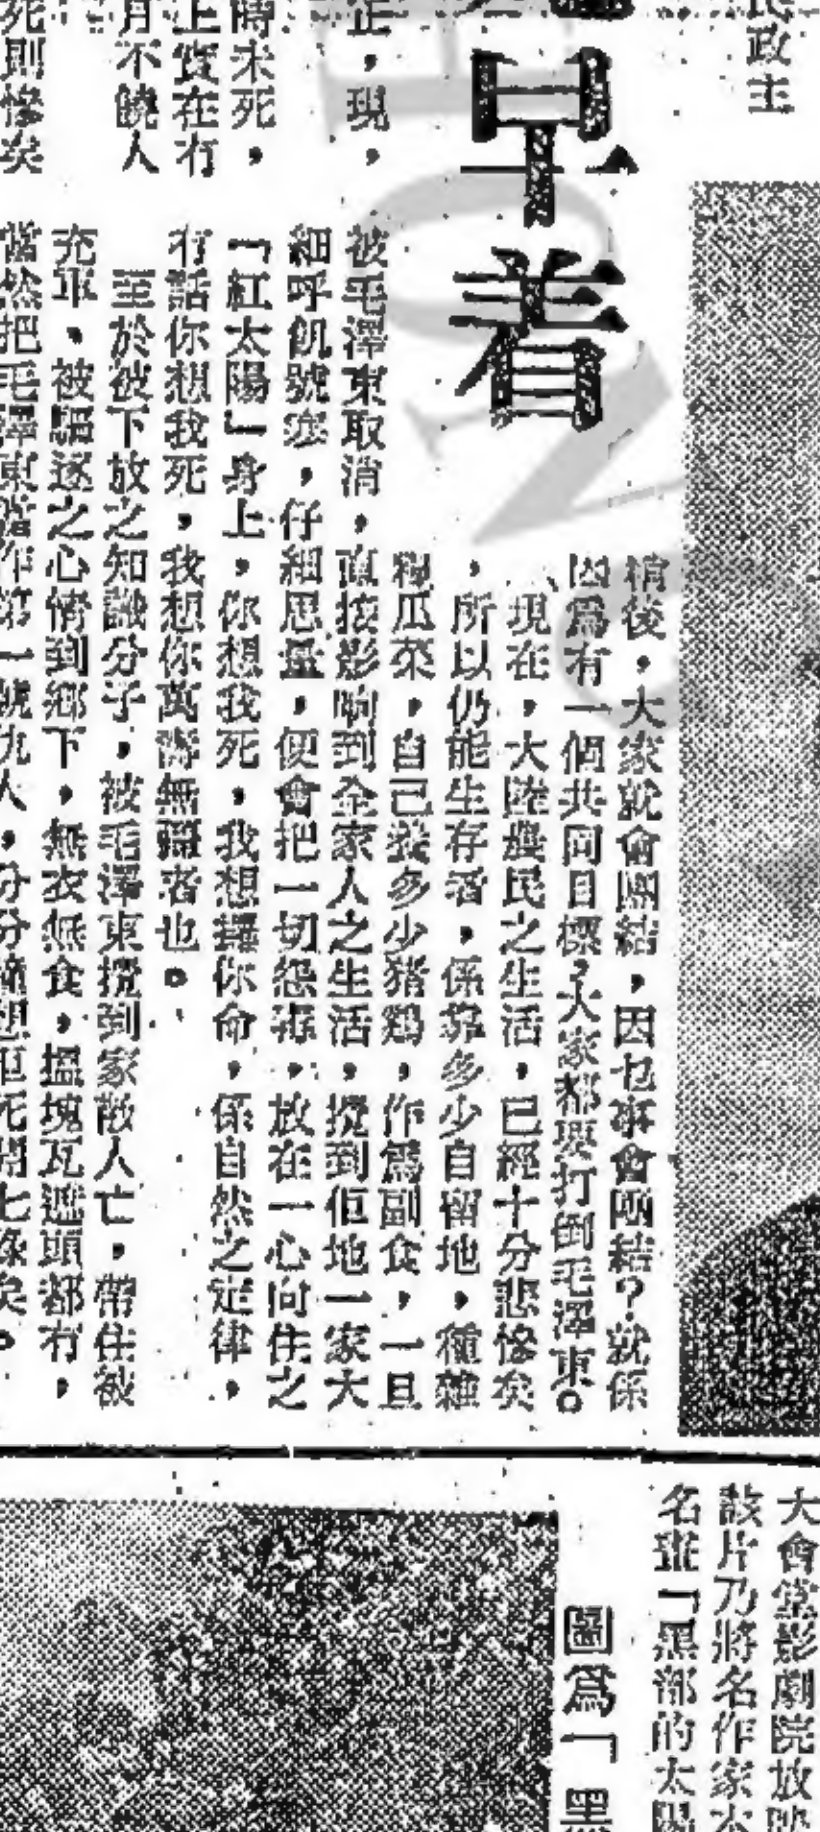 民政主
早着
稍後，大家就會團結，因乜事會團結？就係
因爲有一個共同目標，大家都要打倒毛澤東。
現在，大陸農民之生活，已經十分悲慘矣
，所以仍能生存着，係靠多少自留地，種雜
糧瓜菜，自己養多少猪鷄，作爲副食，一旦
正，現，
被毛澤東取消，直接影响到全家人之生活，攪到佢地一家大
細呼飢號寒，仔細思量，便會把一切怨毒，放在一心向住之
時未死，
「紅太陽」身上，你想我死，我想攞你命，係自然之定律，
上實在冇
冇話你想我死，我想你萬壽無疆者也。
月不饒人
至於被下放之知識分子，被毛澤東攪到家散人亡，帶住被
充軍、被驅逐之心情到鄉下，無衣無食，搵塊瓦遮頭都冇，
死則慘矣
當然把毛澤東當作第一號仇人，分分鐘想佢死開七條矣。
大會堂影劇院放映
該片乃將名作家
名畫「黑部的太陽
圖爲「黑